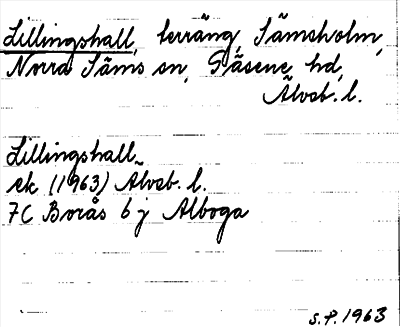 Lillingshall, terräng, Sämsholm,
Norra Säms sn, Gäsene hd,
Älvsb. l.
Lillingshall
ek (1963) Älvsb. l.
7C Borås 6 j Alboga
S.P. 1963